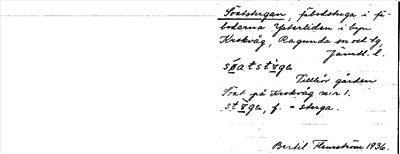 Söatstugan, fäbodstuga i fä-
bodarna Ytterliden i byn
Krokvåg, Ragunda sn och tg,
Jämtl. l.
Tillhör gården
Söat på Krokvåg nr 1.
f. = stuga.
Bertil Flemström 1936.